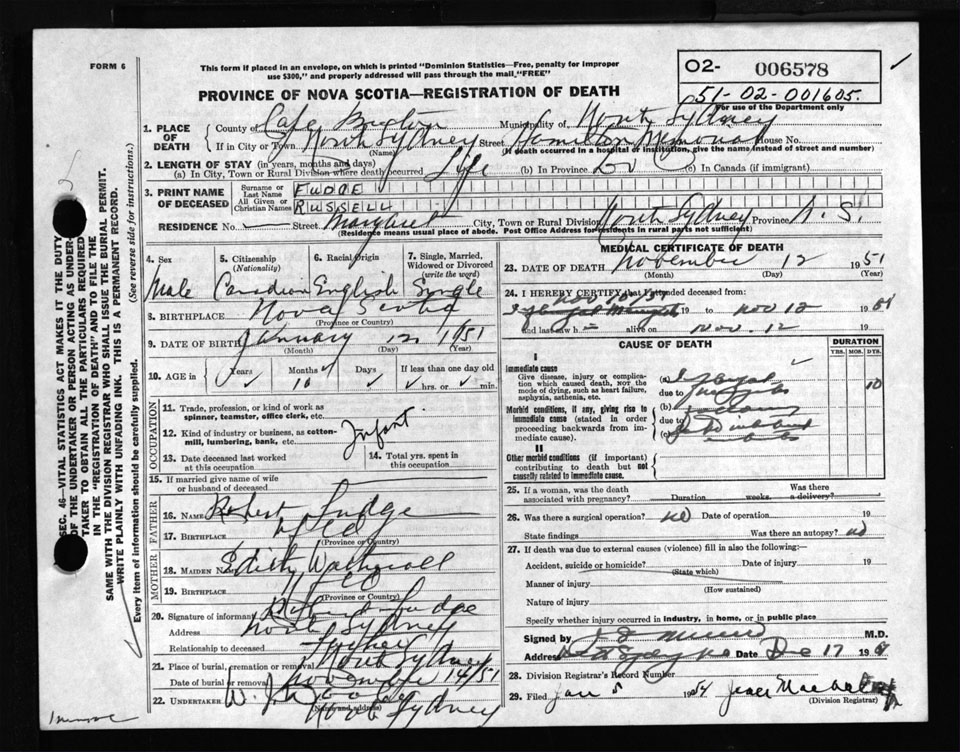 FORM 6
This form if placed in an envelope, on which is printed "Dominion Statistics—Free, penalty for improper
use $300," and properly addressed will pass through the mail "FREE"
PROVINCE OF NOVA SCOTIA—REGISTRATION OF DEATH
02- 006578
51-02-001605.
For use of the Department only
1. PLACE OF DEATH
County of Cape Breton Municipality of North Sydney
If in City or Town North Sydney Street Hamilton Memorial House No.
(Name) (If death occurred in a hospital or institution, give the name instead of street and number)
2. LENGTH OF STAY (in years, months and days)
(a) In City, Town or Rural Division where death occurred Life (b) In Province (c) In Canada (if immigrant)
3. PRINT NAME OF DECEASED
Surname or Last Name FUDGE
All Given or Christian Names RUSSELL
RESIDENCE No. — Street Margaret City, Town or Rural Division North Sydney Province N.S.
(Residence means usual place of abode. Post Office Address for residents in rural parts not sufficient)
4. Sex Male
5. Citizenship (Nationality) Canadian
6. Racial Origin English
7. Single, Married, Widowed or Divorced (write the word) Single
8. BIRTHPLACE Nova Scotia
(Province or Country)
9. DATE OF BIRTH January 12 1951
(Month) (Day) (Year)
10. AGE in Years Months 10 Days If less than one day old hrs. or min.
OCCUPATION
11. Trade, profession, or kind of work as spinner, teamster, office clerk, etc.
12. Kind of industry or business, as cotton-mill, lumbering, bank, etc.
Infant
13. Date deceased last worked at this occupation
14. Total yrs. spent in this occupation
15. If married give name of wife or husband of deceased
FATHER
16. Name Robert Fudge
17. Birthplace Nfld
(Province or Country)
MOTHER
18. Maiden Name Edith
19. Birthplace Nfld
(Province or Country)
20. Signature of informant Robert Fudge
Address North Sydney
Relationship to deceased Father
21. Place of burial, cremation or removal North Sydney
Date of burial or removal November 14/51
22. Undertaker W. J.
(Name and address)
North Sydney
MEDICAL CERTIFICATE OF DEATH
23. DATE OF DEATH November 12 1951
(Month) (Day) (Year)
24. I HEREBY CERTIFY that I attended deceased from:
19 to Nov 12 1951
and last saw h alive on Nov. 12 19
CAUSE OF DEATH
DURATION
YRS. MOS. DYS.
I
Immediate cause
Give disease, injury or complication which caused death, NOT the mode of dying, such as heart failure, asphyxia, asthenia, etc.
(a)
due to
10
Morbid conditions, if any, giving rise to immediate cause (stated in order proceeding backwards from immediate cause).
(b)
due to
(c)
II
Other morbid conditions (if important) contributing to death but not causally related to immediate cause.
25. If a woman, was the death associated with pregnancy? Duration weeks. Was there a delivery?
26. Was there a surgical operation? no Date of operation 19
State findings Was there an autopsy? no
27. If death was due to external causes (violence) fill in also the following:—
Accident, suicide or homicide? Date of injury 19
(State which)
Manner of injury
(How sustained)
Nature of injury
Specify whether injury occurred in industry, in home, or in public place
Signed by M.D.
Address Date Dec 17 19
28. Division Registrar's Record Number
29. Filed Jan 5
(Division Registrar)
SEC. 46—VITAL STATISTICS ACT MAKES IT THE DUTY
OF THE UNDERTAKER OR PERSON ACTING AS UNDER-
TAKER TO OBTAIN ALL THE PARTICULARS REQUIRED
IN THE "REGISTRATION OF DEATH" AND TO FILE THE
SAME WITH THE DIVISION REGISTRAR WHO SHALL ISSUE THE BURIAL PERMIT.
WRITE PLAINLY WITH UNFADING INK. THIS IS A PERMANENT RECORD.
Every item of information should be carefully supplied. (See reverse side for instructions.)